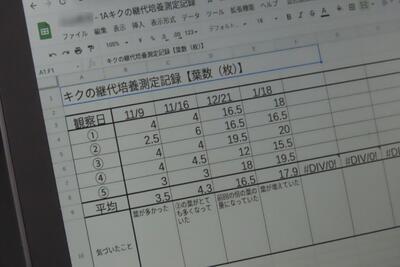 - 1Aキクの継代培養測定記録
ファイル 編集 表示 挿入 表示形式 データ ツール 拡張機能 ヘルプ
100% ¥ % .0 .00 123 デフォルト... 18
A1:F1 キクの継代培養測定記録【葉数（枚）】
A B C D E F
1 キクの継代培養測定記録【葉数（枚）】
2 観察日 11/9 11/16 12/21 1/18
3 ① 4 4 16.5 18
4 ② 2.5 6 16.5 16.5
5 ③ 4 4 19.5 20
6 ④ 4 4.5 12 15.5
7 ⑤ 3 3 18 19.5
8 平均 3.5 4.3 16.5 17.9 #DIV/0! #DIV/0! #DIV/0!
9 気づいたこと
葉が多かった
②の葉がとて
も多くなって
いた
前回の倍の葉の
量になっていた
葉が増えていた